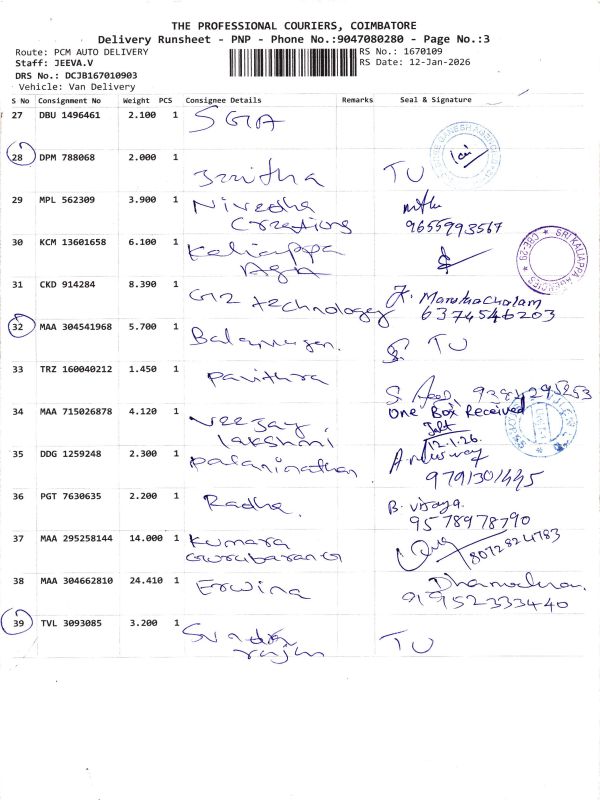 THE PROFESSIONAL COURIERS, COIMBATORE
Delivery Runsheet - PNP - Phone No.:9047080280 - Page No.:3
Route: PCM AUTO DELIVERY RS No.: 1670109
Staff: JEEVA.V RS Date: 12-Jan-2026
DRS No.: DCJB167010903
Vehicle: Van Delivery
S No Consignment No Weight PCS Consignee Details Remarks Seal & Signature
27 DBU 1496461 2.100 1 SGA
28 DPM 788068 2.000 1 TU
29 MPL 562309 3.900 1 Nivedha Creations 9655993567
30 KCM 13601658 6.100 1 Kaliappa Agn SRI KALIAPPA AGENCIES CBE-29
31 CKD 914284 8.390 1 G12 technology 6374546203
32 MAA 304541968 5.700 1 Balamurugan. TU
33 TRZ 160040212 1.450 1 Pavithra
34 MAA 715026878 4.120 1 Veejay lakshmi One Box Received 12.1.26
35 DDG 1259248 2.300 1 Palaninathan 9791301445
36 PGT 7630635 2.200 1 Radha. B. vijaya. 9578978790
37 MAA 295258144 14.000 1 Kumara Gurubaran 8072824783
38 MAA 304662810 24.410 1 Erwina 919952333440
39 TVL 3093085 3.200 1 Sundar rajan TU